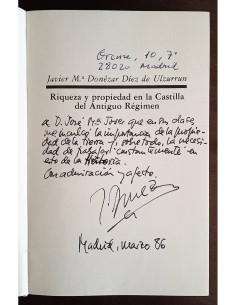 Orense, 10, 7º
28020 Madrid
Javier M.ª Donézar Díez de Ulzurrun
Riqueza y propiedad en la Castilla
del Antiguo Régimen
a D. José Mª Jover que en sus clases
me inculcó la importancia de la propie-
dad de la tierra y, sobre todo, la necesi-
dad de trabajar constantemente en
esto de la Historia.
Con admiración y afecto.
Madrid, marzo 86